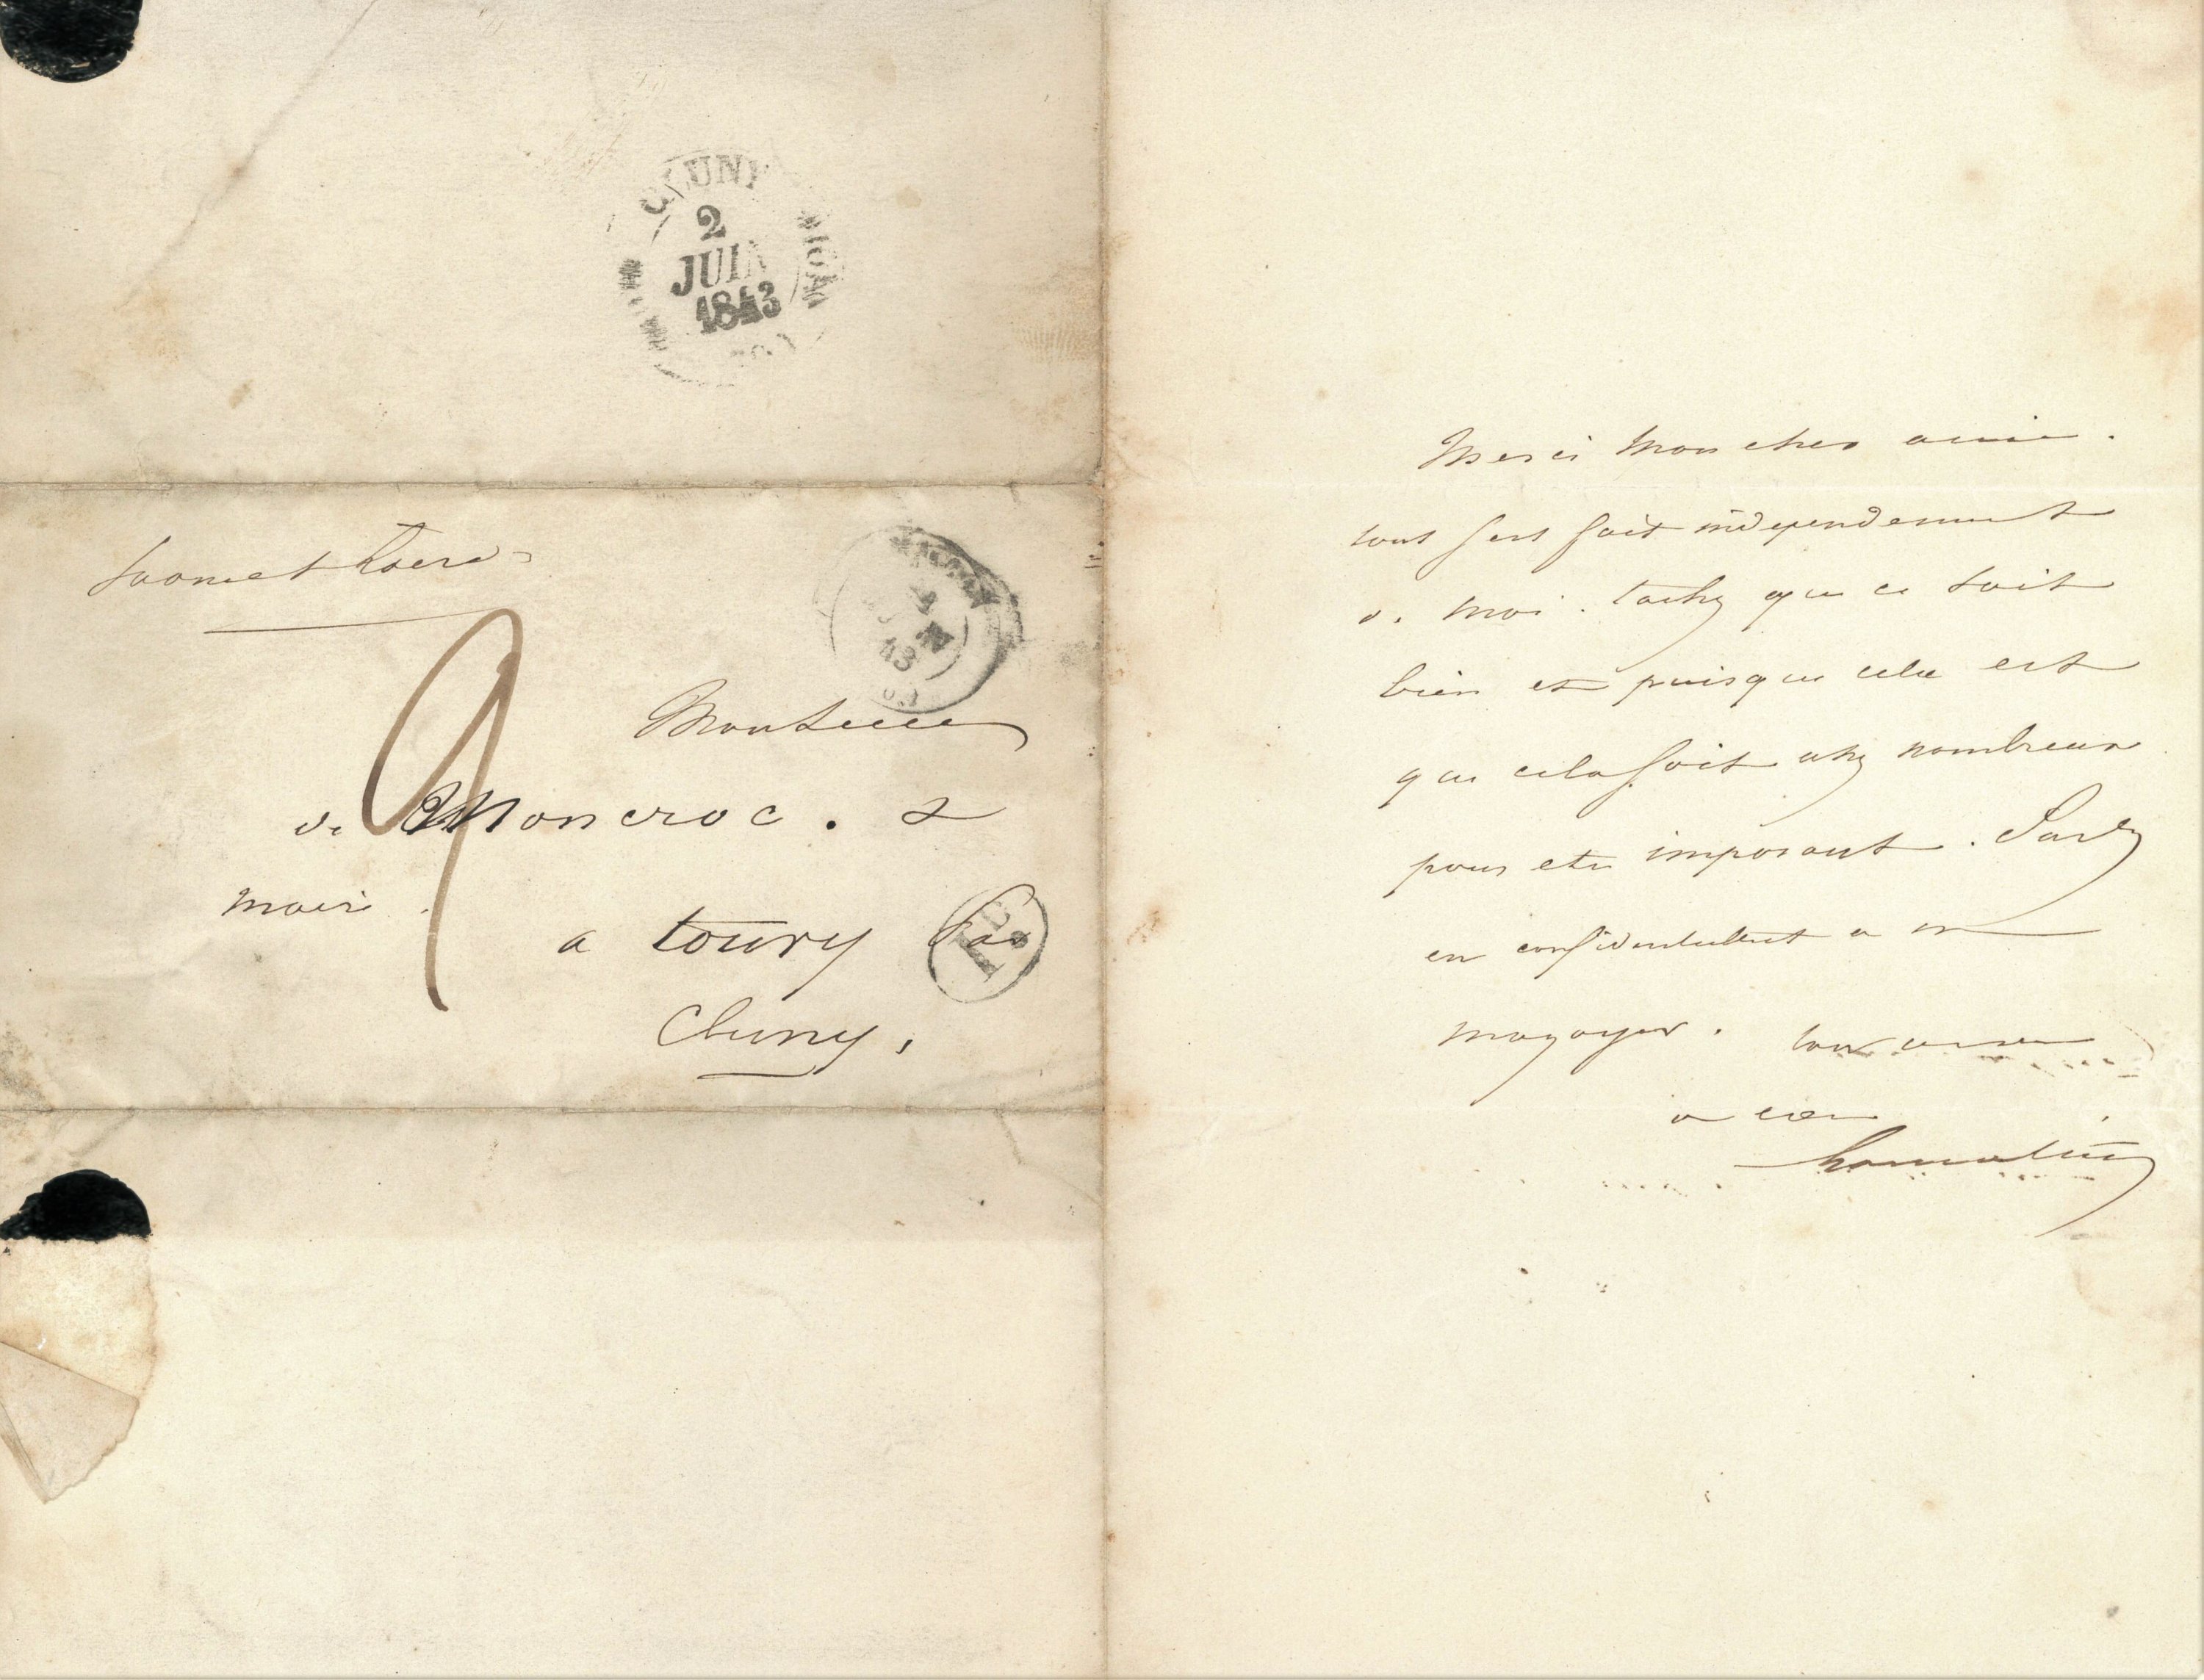 CLUNY
2
JUIN
1843
Saone et Loire
9
Monsieur
de Moncroc. &
maire.
a toury par
Cluny,
Merci mon cher ami.
tout sest fait independement
de moi. tachez que ce soit
bien et puisque cela est
que cela soit assez nombreux
pour etre imposant. Parlez
en confidentiellement a Mr
mazoyer. tout a vous
a coeur
Lamartine